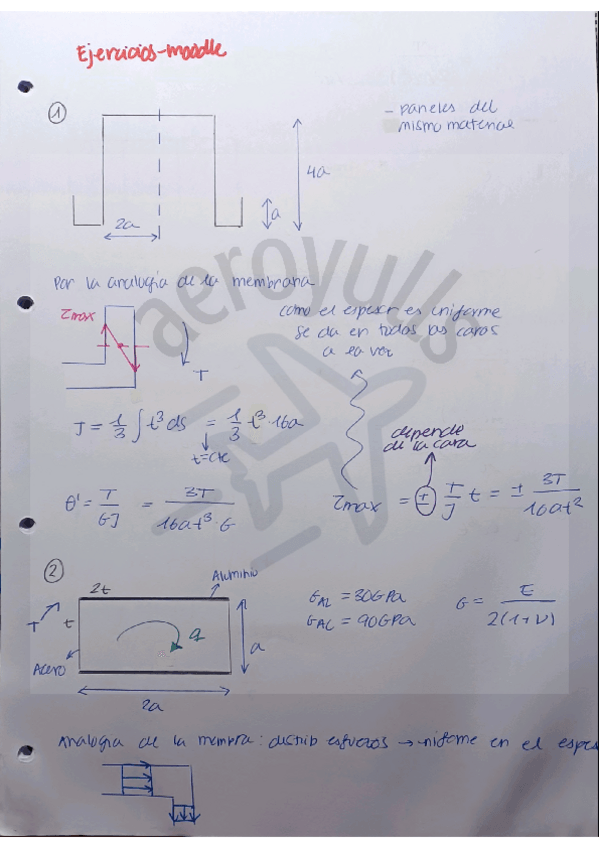 Ejercicios-moodle
①
- paneles del
mismo material
4a
a
2a
Por la analogía de la membrana
τmax
T
como el espesor es uniforme
se da en todas las caras
a la vez
J = 1/3 ∫ t³ ds = 1/3 t³ · 16a
t=cte
depende
de la cara
θ' = T/GJ = 3T/16at³·G
τmax = ± T/J t = ± 3T/16at²
②
2t
Aluminio
T
t
q
a
Acero
2a
G_AL = 30GPa
G_AC = 90GPa
G = E/2(1+ν)
Analogía de la membra: distrib esfuerzos → uniforme en el espes
aeroyulls